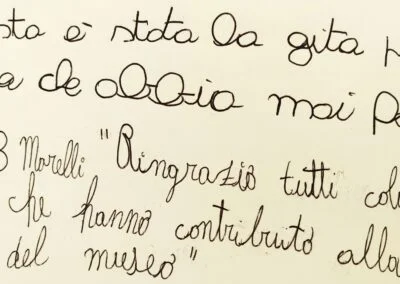 sta è stata la gita
a che abbia mai
B Morelli "Ringrazio tutti
che hanno contribuito alla
del museo"